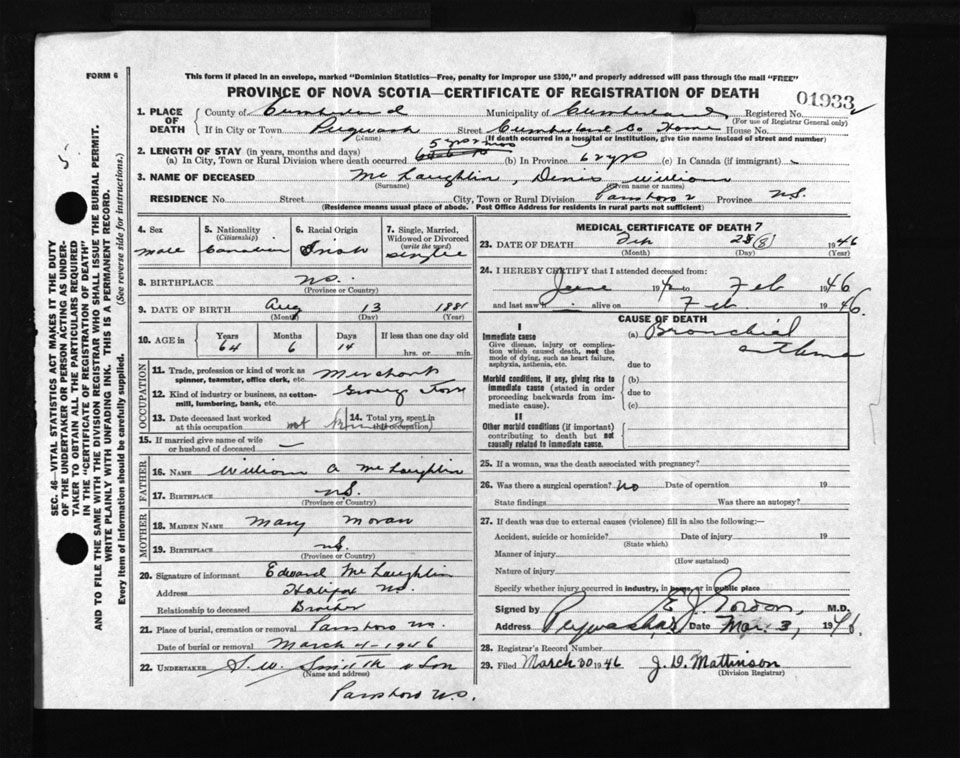 FORM 6
This form if placed in an envelope, marked "Dominion Statistics—Free, penalty for improper use $300," and properly addressed will pass through the mail "FREE"
PROVINCE OF NOVA SCOTIA—CERTIFICATE OF REGISTRATION OF DEATH
01933
1. PLACE OF DEATH County of Cumberland Municipality of Cumberland Registered No.
(For use of Registrar General only)
If in City or Town Pugwash Street Cumberland Co Home House No.
(Name) (If death occurred in a hospital or institution, give the name instead of street and number)
2. LENGTH OF STAY (in years, months and days) 5 yrs
(a) In City, Town or Rural Division where death occurred (b) In Province 62 yrs (c) In Canada (if immigrant)
3. NAME OF DECEASED Mc Laughlin, Denis William
(Surname) (Given name or names)
RESIDENCE No. Street City, Town or Rural Division Parrsboro Province N.S.
(Residence means usual place of abode. Post Office Address for residents in rural parts not sufficient)
4. Sex
male
5. Nationality
(Citizenship)
Canadian
6. Racial Origin
Irish
7. Single, Married, Widowed or Divorced
(write the word)
single
8. BIRTHPLACE N.S.
(Province or Country)
9. DATE OF BIRTH Aug 13 1881
(Month) (Day) (Year)
10. AGE in Years Months Days If less than one day old
64 6 14 hrs. or min.
OCCUPATION
11. Trade, profession or kind of work as spinner, teamster, office clerk, etc. Merchant
12. Kind of industry or business, as cotton-mill, lumbering, bank, etc. Grocery Store
13. Date deceased last worked at this occupation not
14. Total yrs. spent in this occupation
15. If married give name of wife or husband of deceased —
FATHER
16. NAME William A McLaughlin
17. BIRTHPLACE N.S.
(Province or Country)
MOTHER
18. MAIDEN NAME Mary Moran
19. BIRTHPLACE N.S.
(Province or Country)
20. Signature of informant Edward McLaughlin
Address Halifax N.S.
Relationship to deceased Brother
21. Place of burial, cremation or removal Parrsboro N.S.
Date of burial or removal March 4 - 1946
22. UNDERTAKER S.W. Smith & Son
(Name and address)
Parrsboro N.S.
MEDICAL CERTIFICATE OF DEATH
23. DATE OF DEATH Feb 28 (8) 1946
(Month) (Day) (Year)
24. I HEREBY CERTIFY that I attended deceased from:
June 194 to Feb 1946
and last saw h alive on Feb. 1946.
CAUSE OF DEATH
I
Immediate cause
Give disease, injury or complication which caused death, not the mode of dying, such as heart failure, asphyxia, asthenia, etc.
(a) Bronchial asthma
due to
Morbid conditions, if any, giving rise to immediate cause (stated in order proceeding backwards from immediate cause).
(b)
due to
(c)
II
Other morbid conditions (if important) contributing to death but not causally related to immediate cause.
25. If a woman, was the death associated with pregnancy?
26. Was there a surgical operation? No Date of operation 19
State findings Was there an autopsy?
27. If death was due to external causes (violence) fill in also the following:—
Accident, suicide or homicide? Date of injury 19
(State which)
Manner of injury
(How sustained)
Nature of injury
Specify whether injury occurred in industry, in home, or in public place
Signed by M.D.
Address Pugwash Date Mar. 3, 1946.
28. Registrar's Record Number
29. Filed March 30 1946 J. D. Mattinson
(Division Registrar)
SEC. 46—VITAL STATISTICS ACT MAKES IT THE DUTY
OF THE UNDERTAKER OR PERSON ACTING AS UNDER-
TAKER TO OBTAIN ALL THE PARTICULARS REQUIRED
IN THE "CERTIFICATE OF REGISTRATION OF DEATH"
AND TO FILE THE SAME WITH THE DIVISION REGISTRAR WHO SHALL ISSUE THE BURIAL PERMIT.
WRITE PLAINLY WITH UNFADING INK. THIS IS A PERMANENT RECORD.
Every item of information should be carefully supplied. (See reverse side for instructions.)